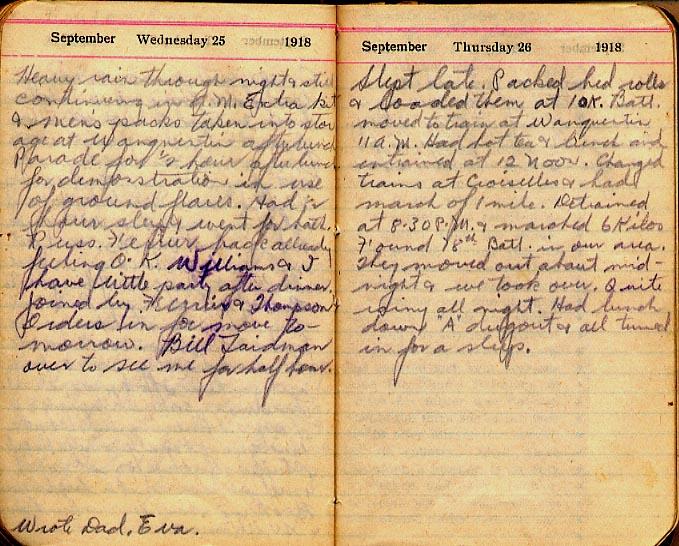 September Wednesday 25 1918
Heavy rain through night & still
continuing in A.M. Extra kit
& mens packs taken into stor
age at Wanquetin after lunch
Parade for ½ hour after lunch
for demonstration in use
of ground flares. Had
hour sleep & went for bath.
Russ. back already
feeling O.K. Williams & I
have little party after dinner
joined by & Thompson
Orders in for move to-
morrow. Bill Laidman
over to see me for half hour.
Wrote Dad, Eva.
September Thursday 26 1918
Slept late. Packed bed rolls
& loaded them at 10 K. Batt.
moved to train at Wanquetin
11 A.M. Had hot tea & lunch and
entrained at 12 Noon. Changed
trains at Croiselles & had
march of 1 mile. Detrained
at 8.30 P.M. & marched 6 Kilos
Found 78th Batt. in our area.
They moved out about mid-
night & we took over. Quite
rainy all night. Had lunch
down "A" dugout & all turned
in for a sleep.